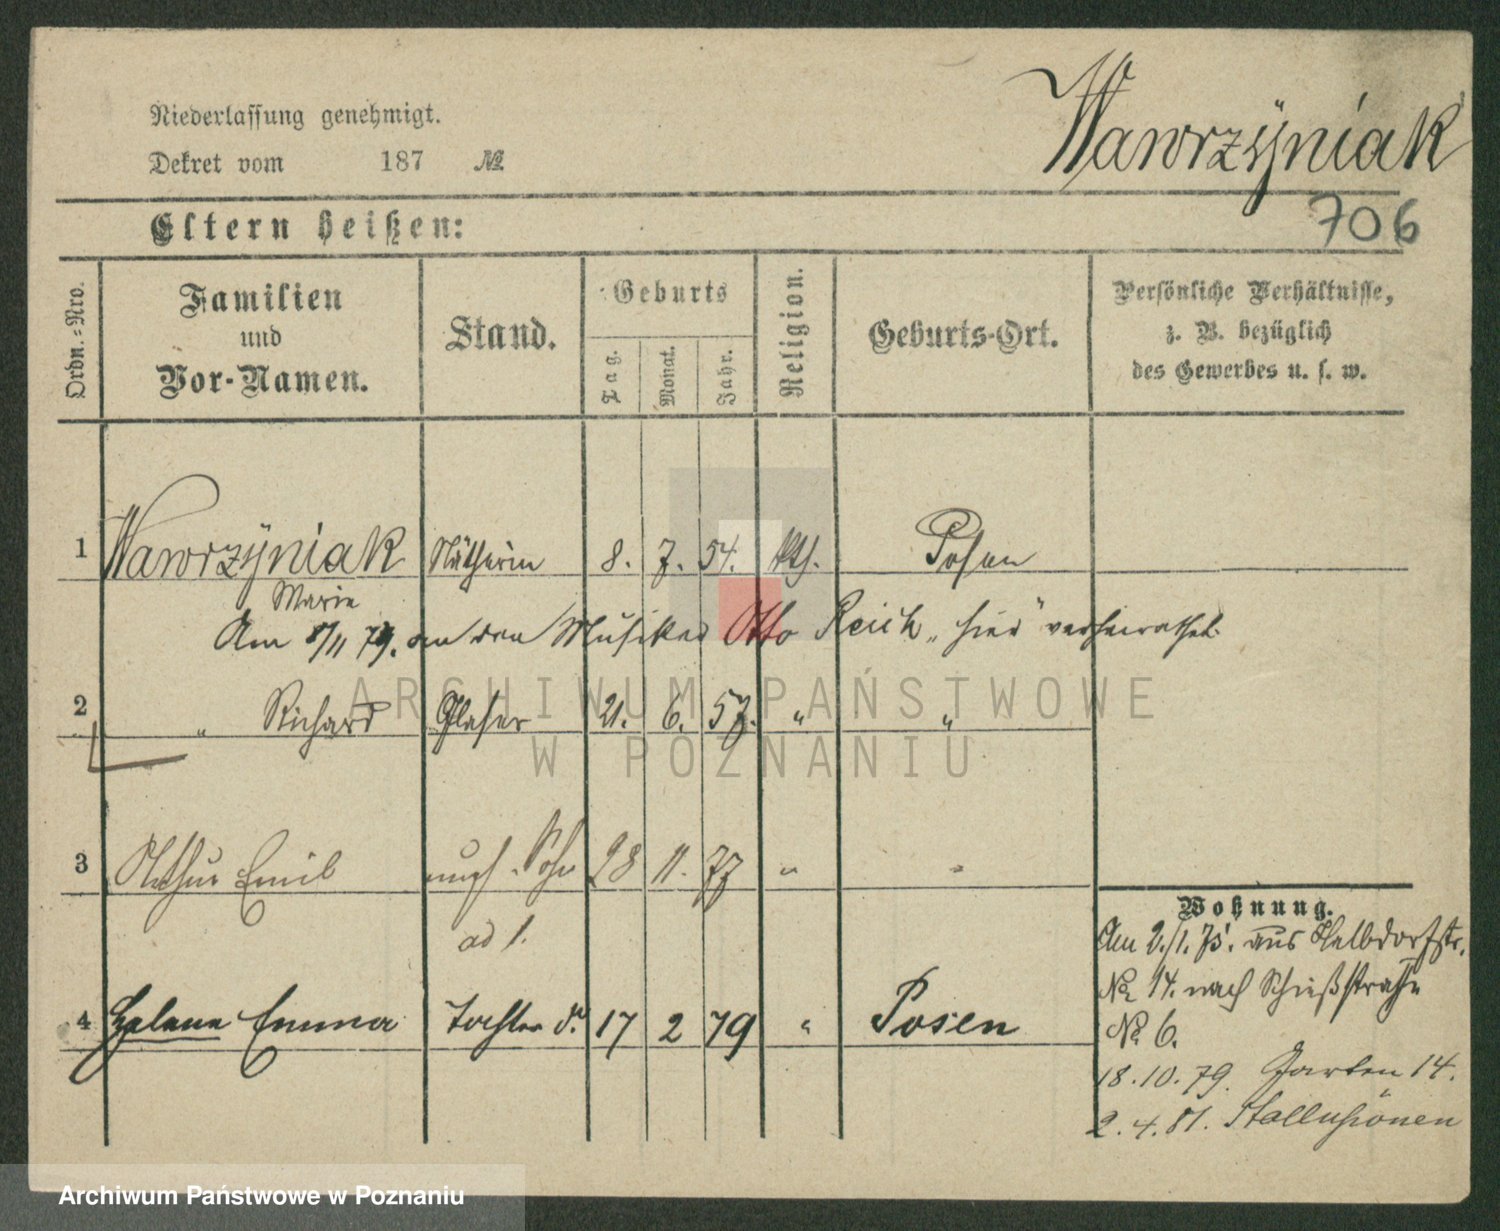 Niederlassung genehmigt.
Dekret vom 187 №
Wawrzÿniak
706
Eltern heißen:
Ordn.=Nro.
Familien
und
Vor-Namen.
Stand.
Geburts
Tag.
Monat.
Jahr.
Religion.
Geburts-Ort.
Persönliche Verhältnisse,
z. B. bezüglich
des Gewerbes u. s. w.
1 Wawrzÿniak Nätherin 8. 7. 54. kth. Posen
Marie
Am 8/11 79. an den Musiker Otto Reich „hier“ verheirathet.
2 " Richard Glaser 21. 6. 57. " "
3 Arthur Emil Sohn 28 11. 77 " "
ad 1.
4 Helene Emma Tochter d. 17 2 79 " Posen
Wohnung.
Am 2./1. 75. aus Halbdorfstr.
No. 14. nach Schießstraße
No. 6.
18.10.79. Garten 14.
2.4.81. Stallupönen
ARCHIWUM PAŃSTWOWE
W POZNANIU
Archiwum Państwowe w Poznaniu